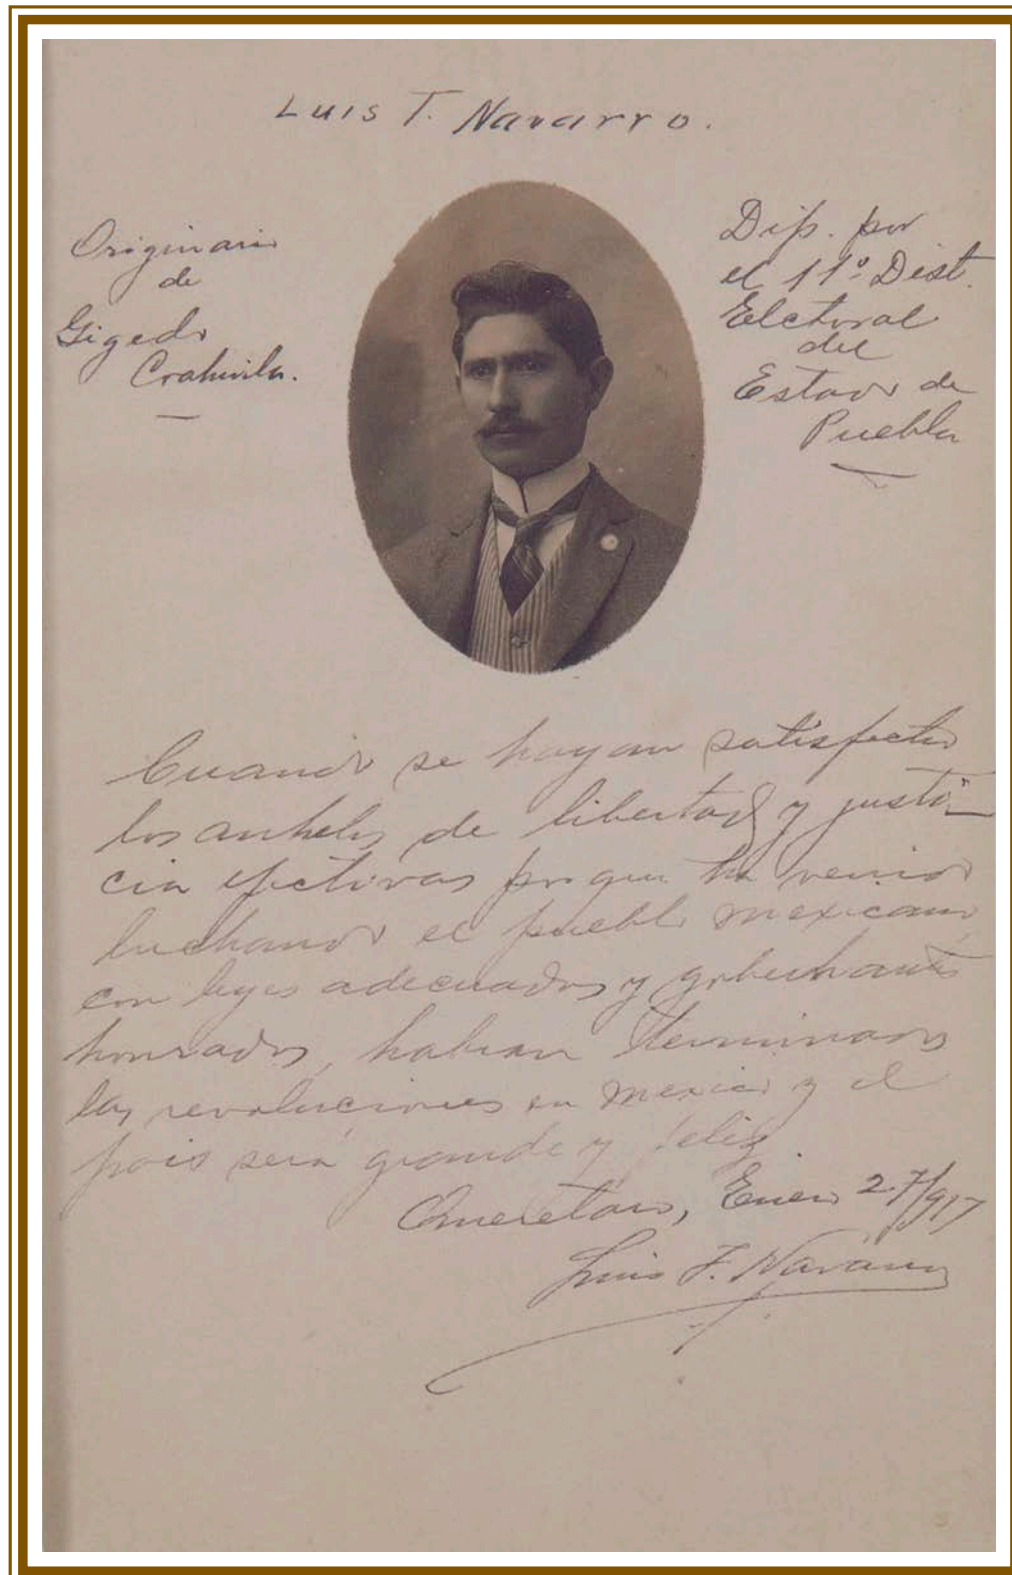 Luis T. Navarro.
Originario
de
Gigedo
Coahuila.
Dip. por
el 11º Dist.
Electoral
del
Estado de
Puebla
Cuando se hayan satisfecho
los anhelos de libertad y justi-
cia efectivas porque ha venido
luchando el pueblo mexicano,
con leyes adecuadas y gobernantes
honrados, habrán terminado
las revoluciones en Mexico y el
pais será grande y feliz.
Querétaro, Enero 27/917
Luis T. Navarro